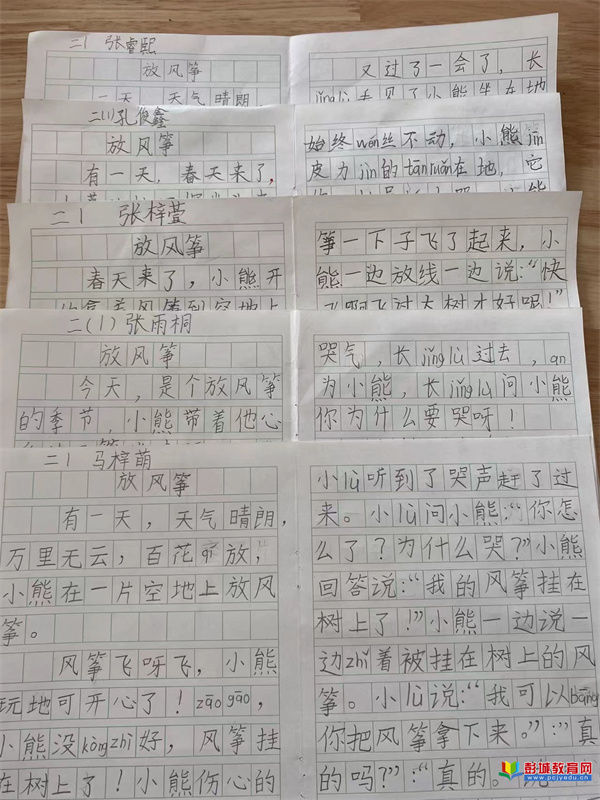 二1 张睿熙
放风筝
一天，天气晴朗，
又过了一会了，长
jǐnglù看见了小熊坐在地
二(1)孔俊鑫
放风筝
有一天，春天来了，
始终wén丝不动，小熊jīn
皮力jìn的tānruǎn在地，它
二1 张梓萱
放风筝
春天来了，小熊开
筝一下子飞了起来，小
熊一边放线一边说：“快
飞啊飞过大树才好呢！”
二(1)张雨桐
放风筝
今天，是个放风筝
的季节，小熊带着他心
哭气，长jǐnglù过去，an
为小熊，长jǐnglù问小熊
你为什么要哭呀！
二1 马梓萌
放风筝
有一天，天气晴朗，
万里无云，百花qí放，
小熊在一片空地上放风
筝。
风筝飞呀飞，小熊
玩地可开心了！zāogāo，
小熊没kòngzhì好，风筝挂
在树上了！小熊伤心的
小lù听到了哭声赶了过
来。小lù问小熊：“你怎
么了？为什么哭？”小熊
回答说：“我的风筝挂在
树上了！”小熊一边说一
边zhǐ着被挂在树上的风
筝。小lù说：“我可以bāng
你把风筝拿下来。”：“真
的吗？”：“真的。”
彭城教育网
www.pcjyedu.cn